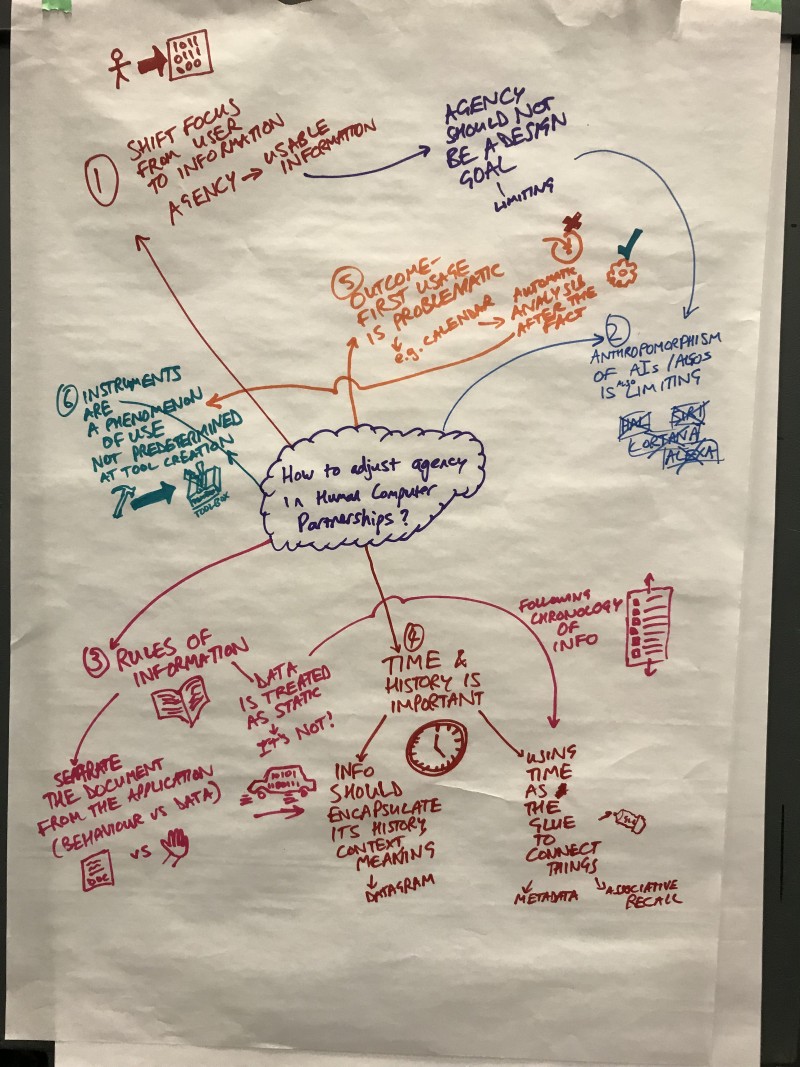 1011
0111
000
1
SHIFT FOCUS
FROM USER
TO INFORMATION
AGENCY → USABLE
INFORMATION
AGENCY
SHOULD NOT
BE A DESIGN
GOAL
LIMITING
5
OUTCOME-
FIRST USAGE
IS PROBLEMATIC
e.g. CALENDAR → AUTOMATIC
ANALYSIS
AFTER THE
FACT
2
ANTHROPOMORPHISM
OF AIs / ALGOS
IS ALSO LIMITING
HAL SIRI
CORTANA
ALEXA
6 INSTRUMENTS
ARE
A PHENOMENON
OF USE
NOT PREDETERMINED
AT TOOL CREATION
TOOLBOX
How to adjust agency
in Human Computer
Partnerships?
3 RULES OF
INFORMATION
DATA
IS TREATED
AS STATIC
IT'S NOT!
SEPARATE
THE DOCUMENT
FROM THE APPLICATION
(BEHAVIOUR VS DATA)
DOC
VS
10101
4
TIME &
HISTORY IS
IMPORTANT
INFO
SHOULD
ENCAPSULATE
ITS HISTORY
CONTEXT
MEANING
DATAGRAM
FOLLOWING
CHRONOLOGY
OF
INFO
USING
TIME
AS
THE
GLUE
TO
CONNECT
THINGS
METADATA
ASSOCIATIVE
RECALL